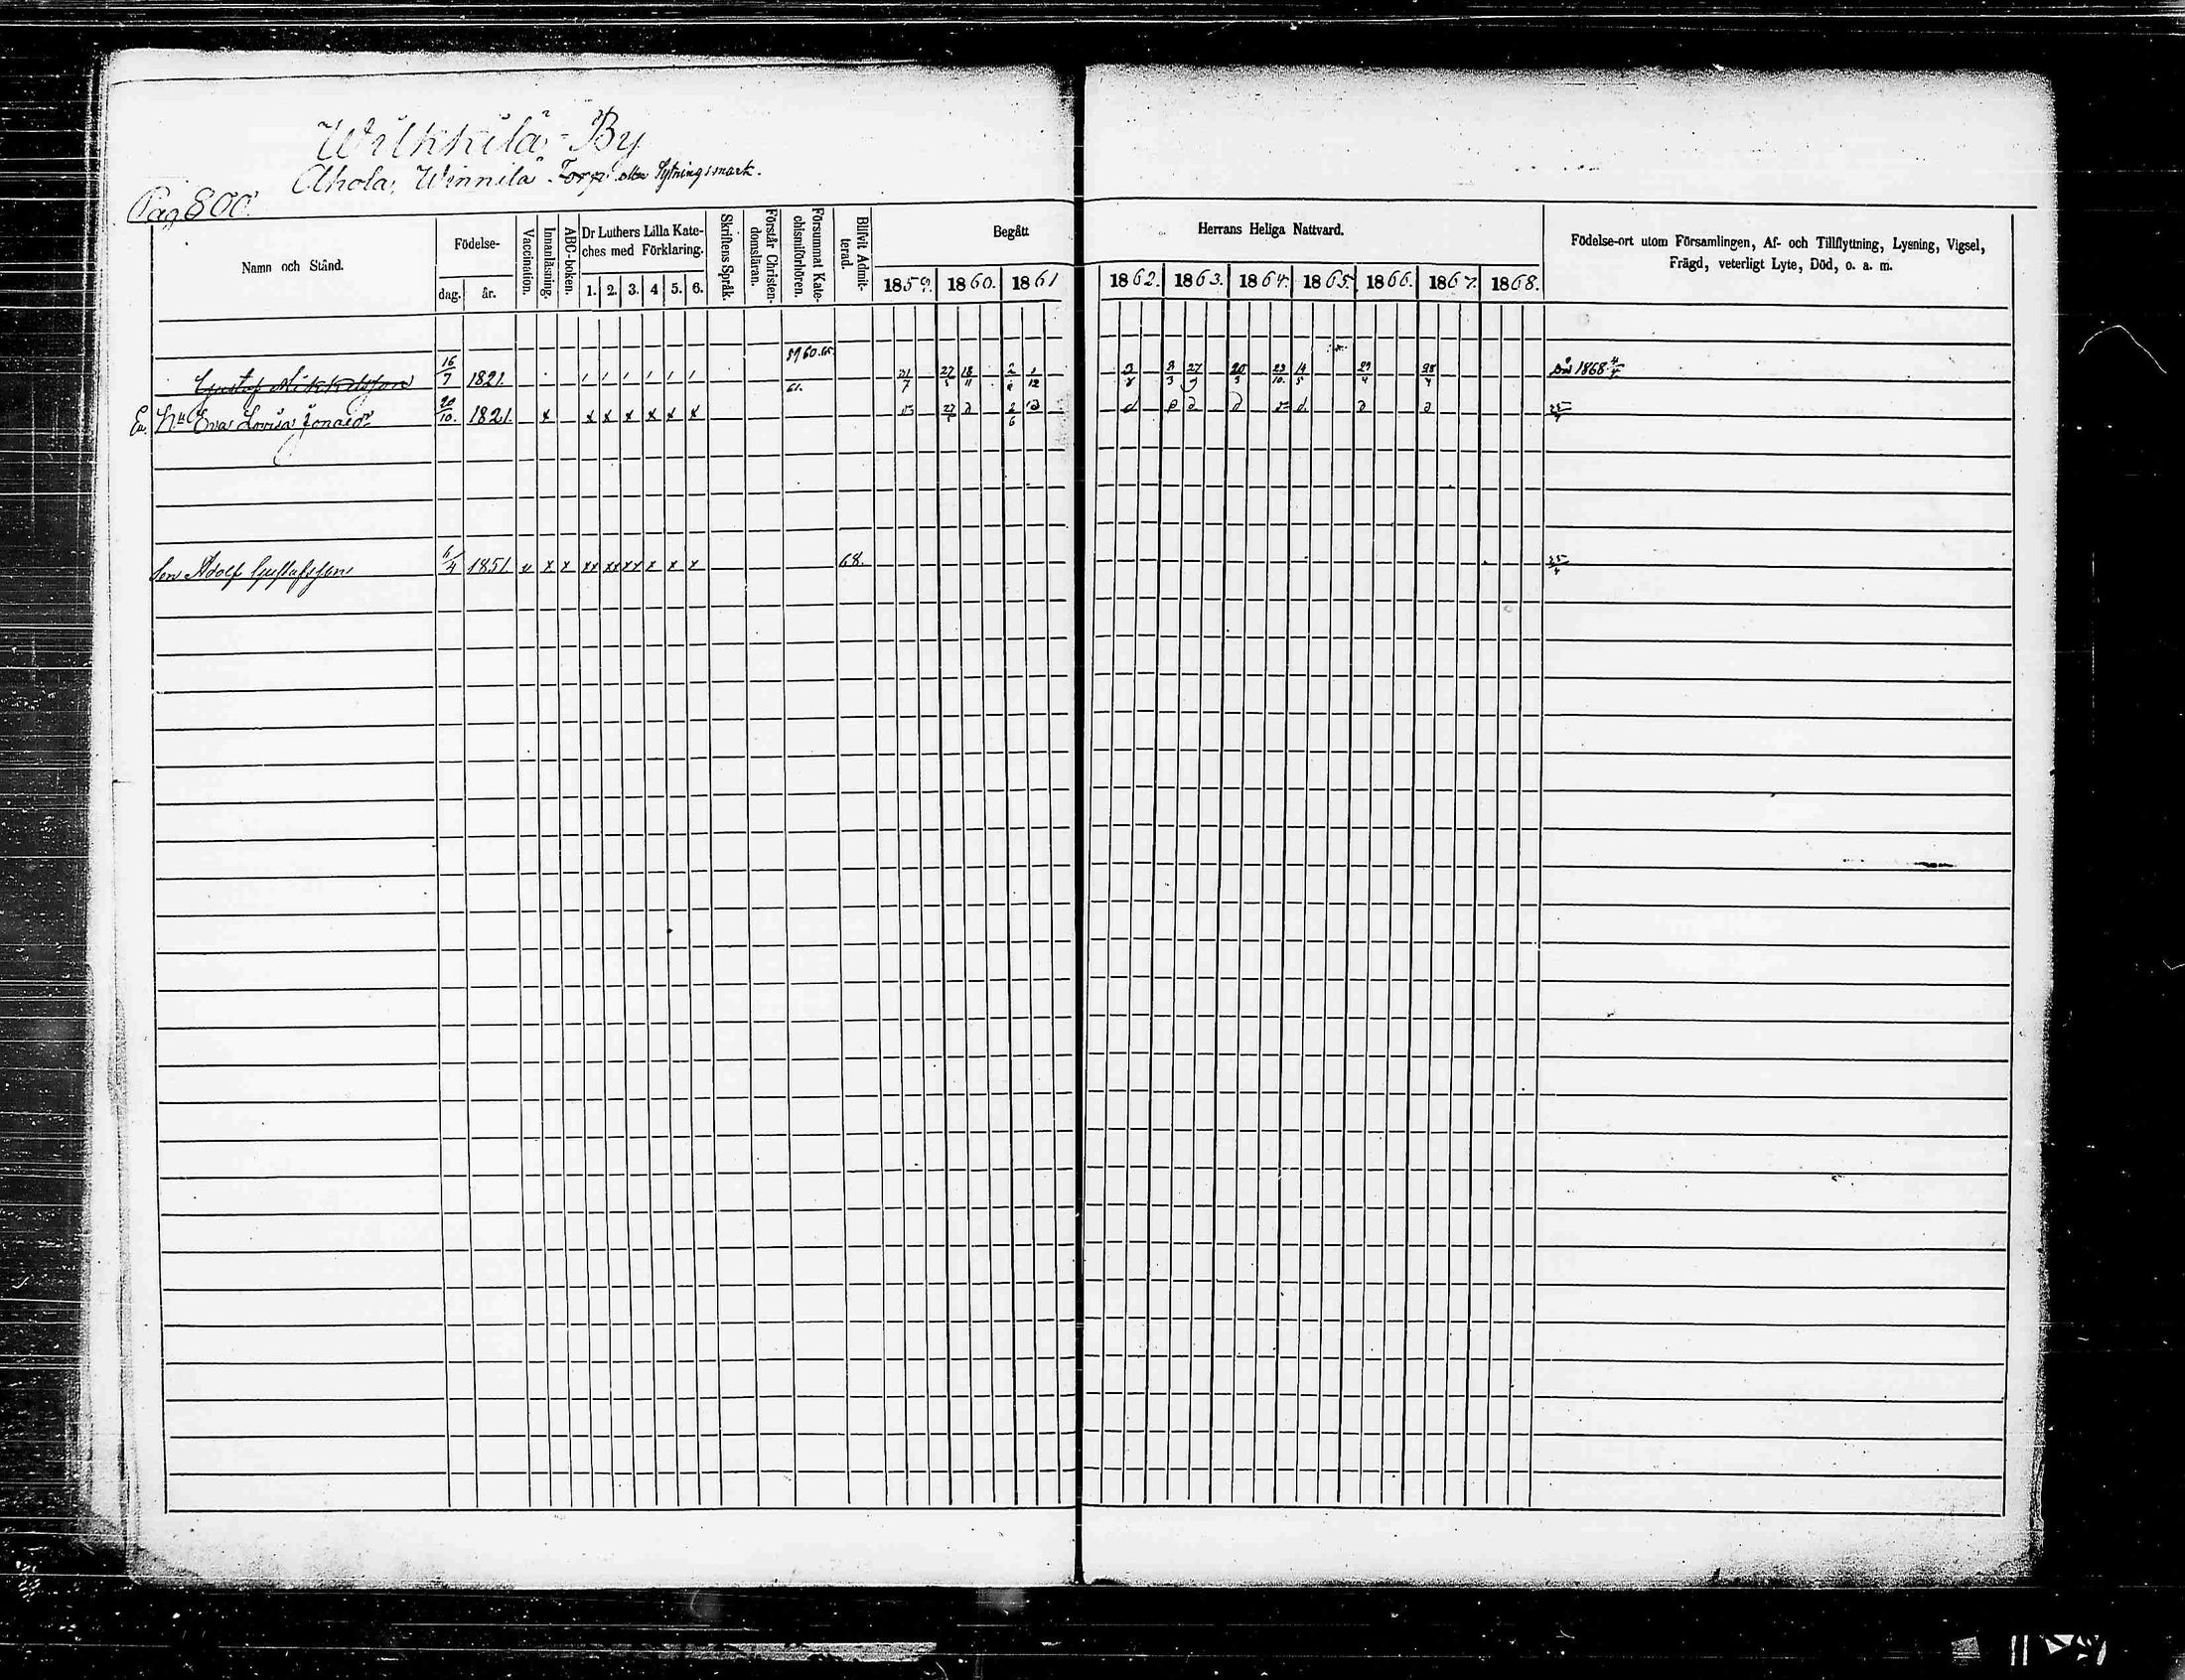 Wilkkilä By
Ahola, Winnilä Torp. eller Sytningsmark.
Pag 800.
Namn och Stånd.
Födelse-
dag. år.
Vaccination.
Innanläsning.
ABC-boken.
Dr Luthers Lilla Kate-
ches med Förklaring.
1. 2. 3. 4 5. 6.
Skriftens Språk.
Förstår Christen-
domsläran.
Försummat Kate-
chismiförhören.
Blifvit Admit-
terad.
Begått
1859. 1860. 1861
Herrans Heliga Nattvard.
1862. 1863. 1864. 1865. 1866. 1867. 1868.
Födelse-ort utom Församlingen, Af- och Tillflyttning, Lysning, Vigsel,
Frägd, veterligt Lyte, Död, o. a. m.
Gustaf Mikkelsson 16/7 1821. 59 60. 65. 61. 21/7 27/5 18/11 1/12 8/3 27/9 20/3 23/10 14/5 29/4 28/4 Död 1868 4/4
En. H:u Eva Lovisa Jonasdr 20/10. 1821. x x x x x x x 2/6 25/4
Son Adolf Gustafsson 6/4 1851. x x x xx xx xx x x x 68. 25/4